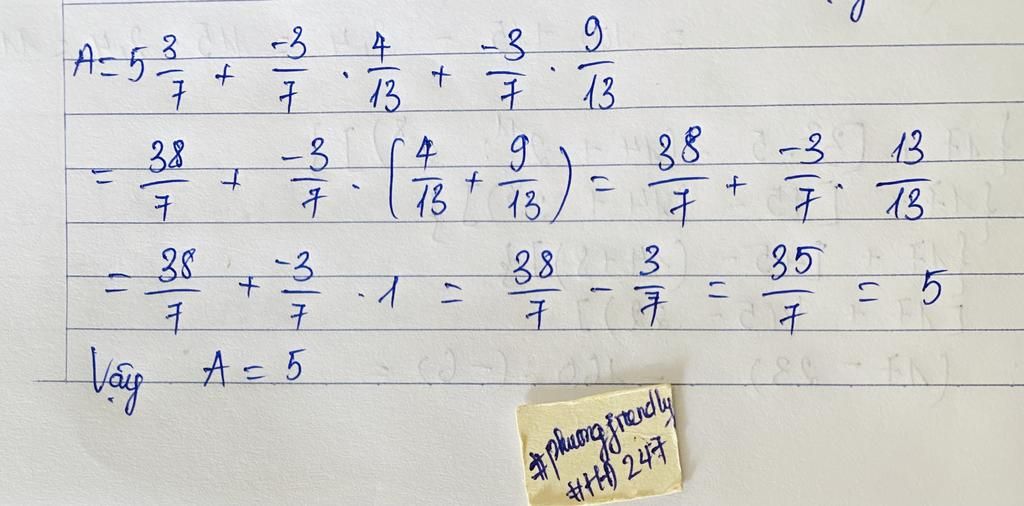 A = 5 3/7 + -3/7 . 4/13 + -3/7 . 9/13
= 38/7 + -3/7 . (4/13 + 9/13) = 38/7 + -3/7 . 13/13
= 38/7 + -3/7 . 1 = 38/7 - 3/7 = 35/7 = 5
Vậy A = 5
#phuongfriendly
#HĐ247